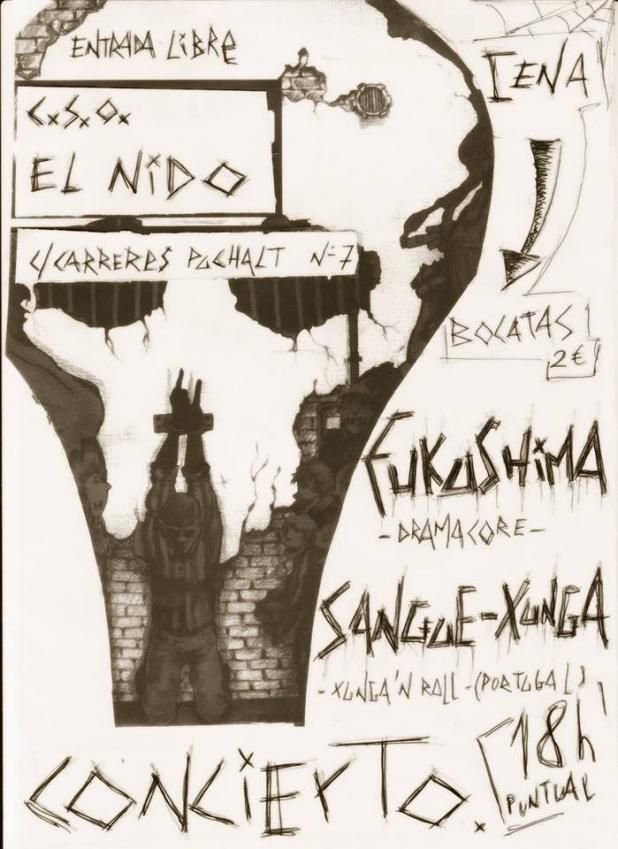 ENTRADA LIBRE
C.S.O.
EL NIDO
C/CARRERES PUCHALT Nº 7
CENA
BOCATAS
2€
FUKUSHIMA
-DRAMACORE-
SANGUE-XUNGA
-XUNGA'N ROLL-(PORTUGAL)
18h
PUNTUAL
CONCIERTO.